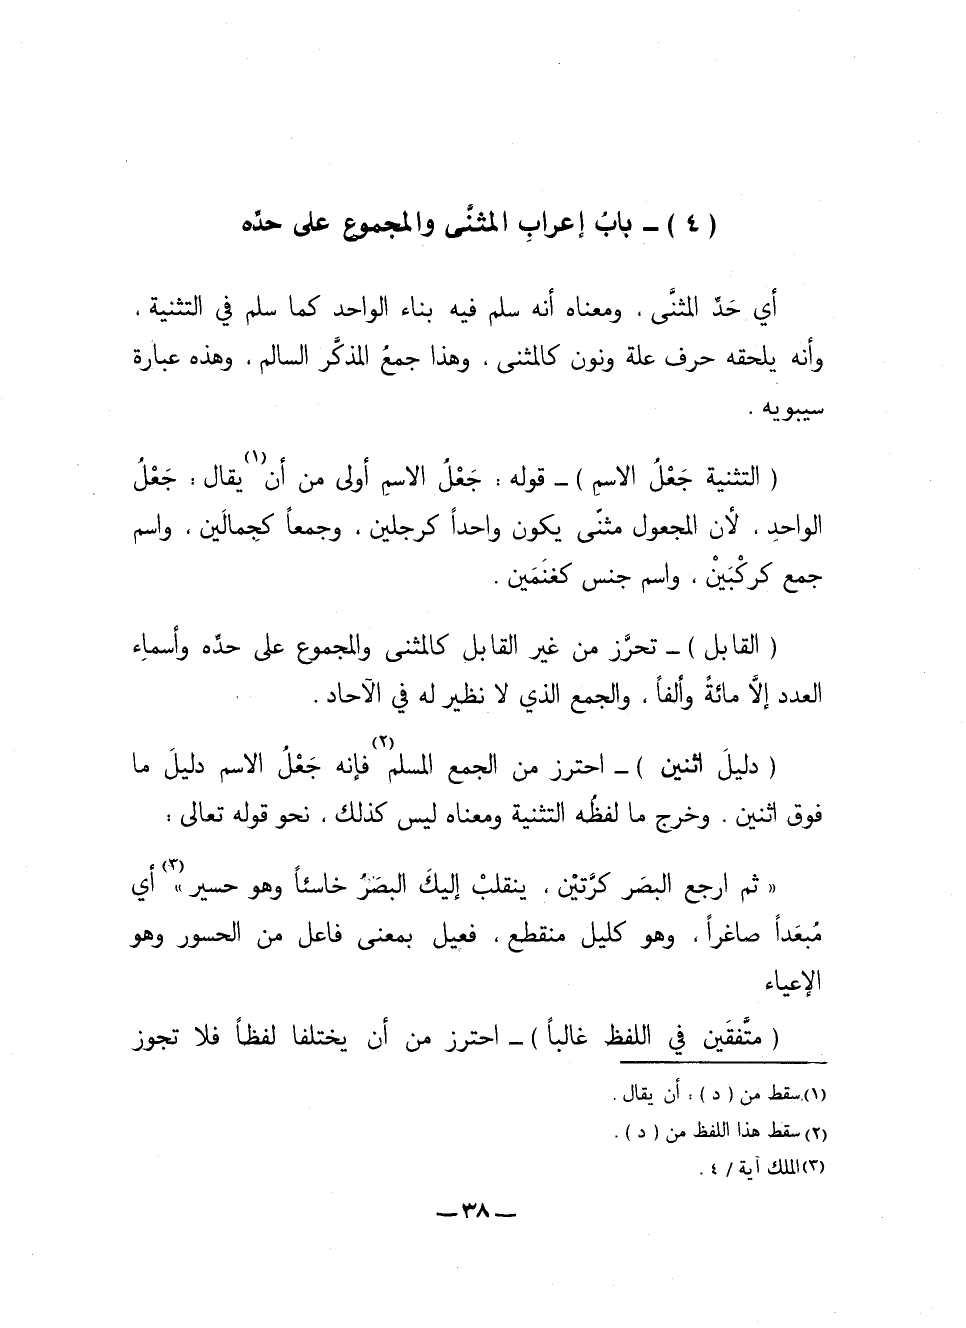 ( ٤ ) ـ بابُ إعرابِ المثنَّى والمجموع على حدّه
أي حَدّ المثنَّى ، ومعناه أنه سلم فيه بناء الواحد كما سلم في التثنية ،
وأنه يلحقه حرف علة ونون كالمثنى ، وهذا جمعُ المذكَّر السالم ، وهذه عبارة
سيبويه .
( التثنية جَعْلُ الاسمِ ) ـ قوله : جَعْلُ الاسمِ أولى من أن (١) يقال : جَعْلُ
الواحدِ ، لأن المجعول مثنّى يكون واحداً كرجلين ، وجمعاً كجِمالَين ، واسم
جمع كركْبَيْن ، واسم جنس كغنَمَين .
( القابل ) ـ تحرَّز من غير القابل كالمثنى والمجموع على حدّه وأسماءِ
العدد إلاَّ مائةً وألفاً ، والجمع الذي لا نظير له في الآحاد .
( دليلَ اثنين ) ـ احترز من الجمع المسلم (٢) فإنه جَعْلُ الاسم دليلَ ما
فوق اثنين . وخرج ما لفظُه التثنية ومعناه ليس كذلك ، نحو قوله تعالى :
« ثم ارجع البصَر كرَّتيْن ، ينقلبْ إليكَ البصَرُ خاسئاً وهو حسير » (٣) أي
مُبعَداً صاغراً ، وهو كليل منقطع ، فعيل بمعنى فاعل من الحسور وهو
الإعياء
( متَّفقَين في اللفظ غالباً ) ـ احترز من أن يختلفا لفظاً فلا تجوز
(١) سقط من ( د ) : أن يقال .
(٢) سقط هذا اللفظ من ( د ) .
(٣) الملك آية / ٤ .
ـ ٣٨ ـ